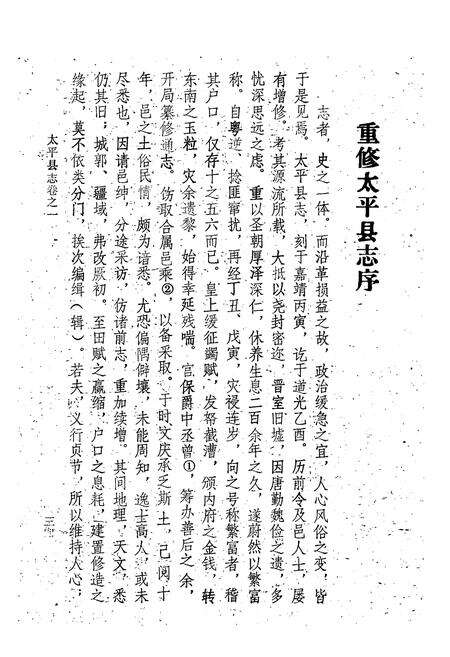 重修太平县志序
志者，史之一体。而沿革损益之故，政治缓急之宜，人心风俗之变，皆
于是见焉。太平县志，刻于嘉靖丙寅，讫于道光乙酉。历前令及邑人士，屡
有增修。考其源流所载，大抵以尧封密迩，晋室旧墟，因唐勤魏俭之遗，多
忧深思远之虑。重以圣朝厚泽深仁，休养生息二百余年之久，遂蔚然以繁富
称。自粤逆、捻匪窜扰，再经丁丑、戊寅，灾祲连岁，向之号称繁富者，稽
其户口，仅存十之五六而已。皇上缓征蠲赋，发帑截漕，颁内府之金钱，转
东南之玉粒，灾余遗黎，始得幸延残喘。宫保爵中丞曾①，筹办善后之余，
开局纂修通志。饬取合属邑乘②，以备采取。于时文庆承乏斯土，已阅十
年，邑之土俗民情，颇为谙悉。尤恐偏隅僻壤，未能周知，逸士高人，或未
尽悉也，因请邑绅，分途采访，仿诸前志，重加续增。其间地理，天文，悉
仍其旧；城郭、疆域，弗改厥初。至田赋之赢缩，户口之息耗，建置修造之
缘起，莫不依类分门，挨次编缉（辑）。若夫，义行贞节，所以维持人心，
太平县志卷之一
三